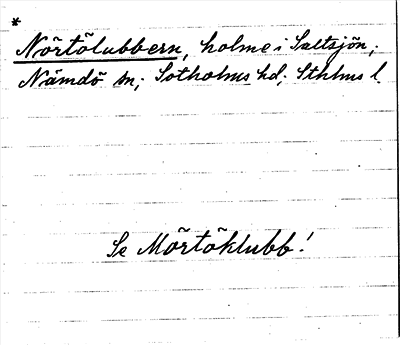 *
Nörtölubbern, holme i Saltsjön,
Nämdö sn; Sotholms hd; Sthlms l.
Se Mörtöklubb!